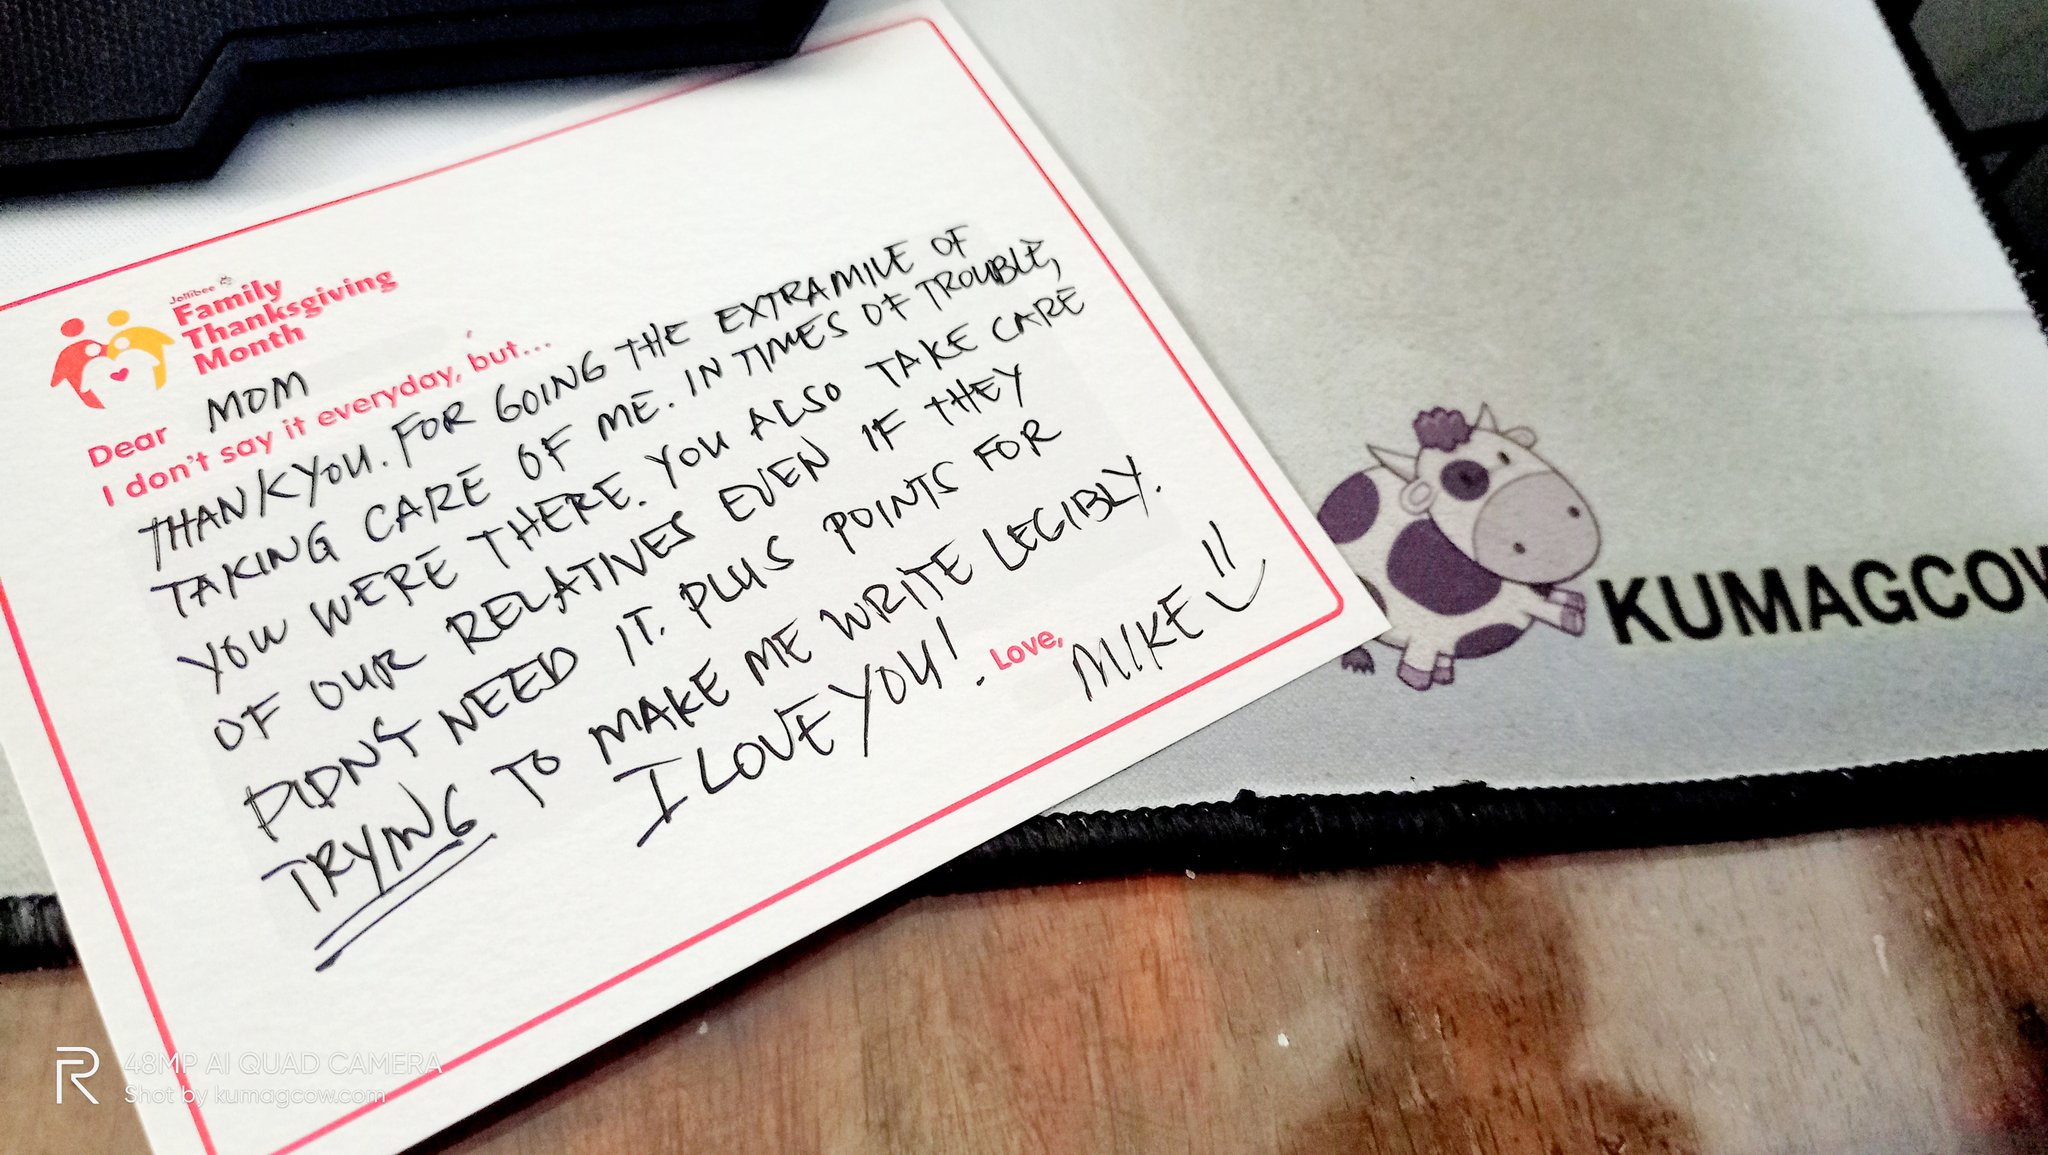 Jollibee
Family
Thanksgiving
Month
Dear MOM
I don't say it everyday, but...
THANKYOU. FOR GOING THE EXTRAMILE OF
TAKING CARE OF ME. IN TIMES OF TROUBLE,
YOU WERE THERE. YOU ALSO TAKE CARE
OF OUR RELATIVES EVEN IF THEY
DIDNT NEED IT. PLUS POINTS FOR
TRYING TO MAKE ME WRITE LEGIBLY.
I LOVE YOU!
Love, MIKE
KUMAGCOW
R 48MP AI QUAD CAMERA
Shot by kumagcow.com